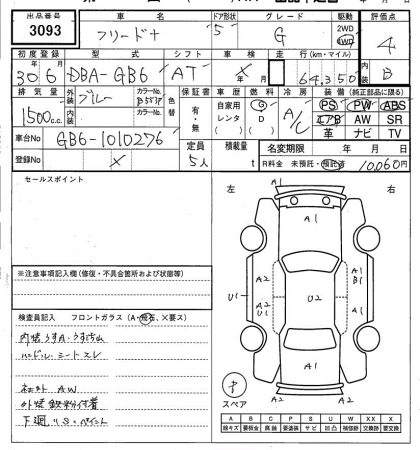 出品番号 車名 ドア形状 グレード 駆動 評価点
3093 フリード+ 5 G 2WD 4WD 4
初度登録 型式 シフト 車検 走行(km・マイル) 内装
30年6月 DBA-GB6 AT ×年 月 64,350 B
排気量 外装 ブルー カラーNo. B551P 色替 保証書 車歴 燃料 冷房 装備(純正部品に限る)
1500c.c. 内装 カラーNo. 有・無 自家用 レンタ G D A/C PS PW ABS
エアB AW SR
革 ナビ TV
車台No GB6-1010276 定員 積載量 名変期限 年 月 日
登録No × 5人 t R料金 未預託・預託済 10,060円
セールスポイント
左 右
A1
A1
A2 A1
B1
U1 A2 U2 A1
U1
A1
A2 A2
スペア
※注意事項記入欄(修復・不具合箇所および状態等)
検査員記入 フロントガラス(A・飛石、×要ス)
内装うすA・うすヨゴレ
ハンドル・シートスレ
社外AW
外装鉄粉付着
下廻りS・ペイント
A B C P S U W XX X
線キズ 要板金 腐蝕 要塗装 サビ 凹凸 補修跡 交換跡 要交換